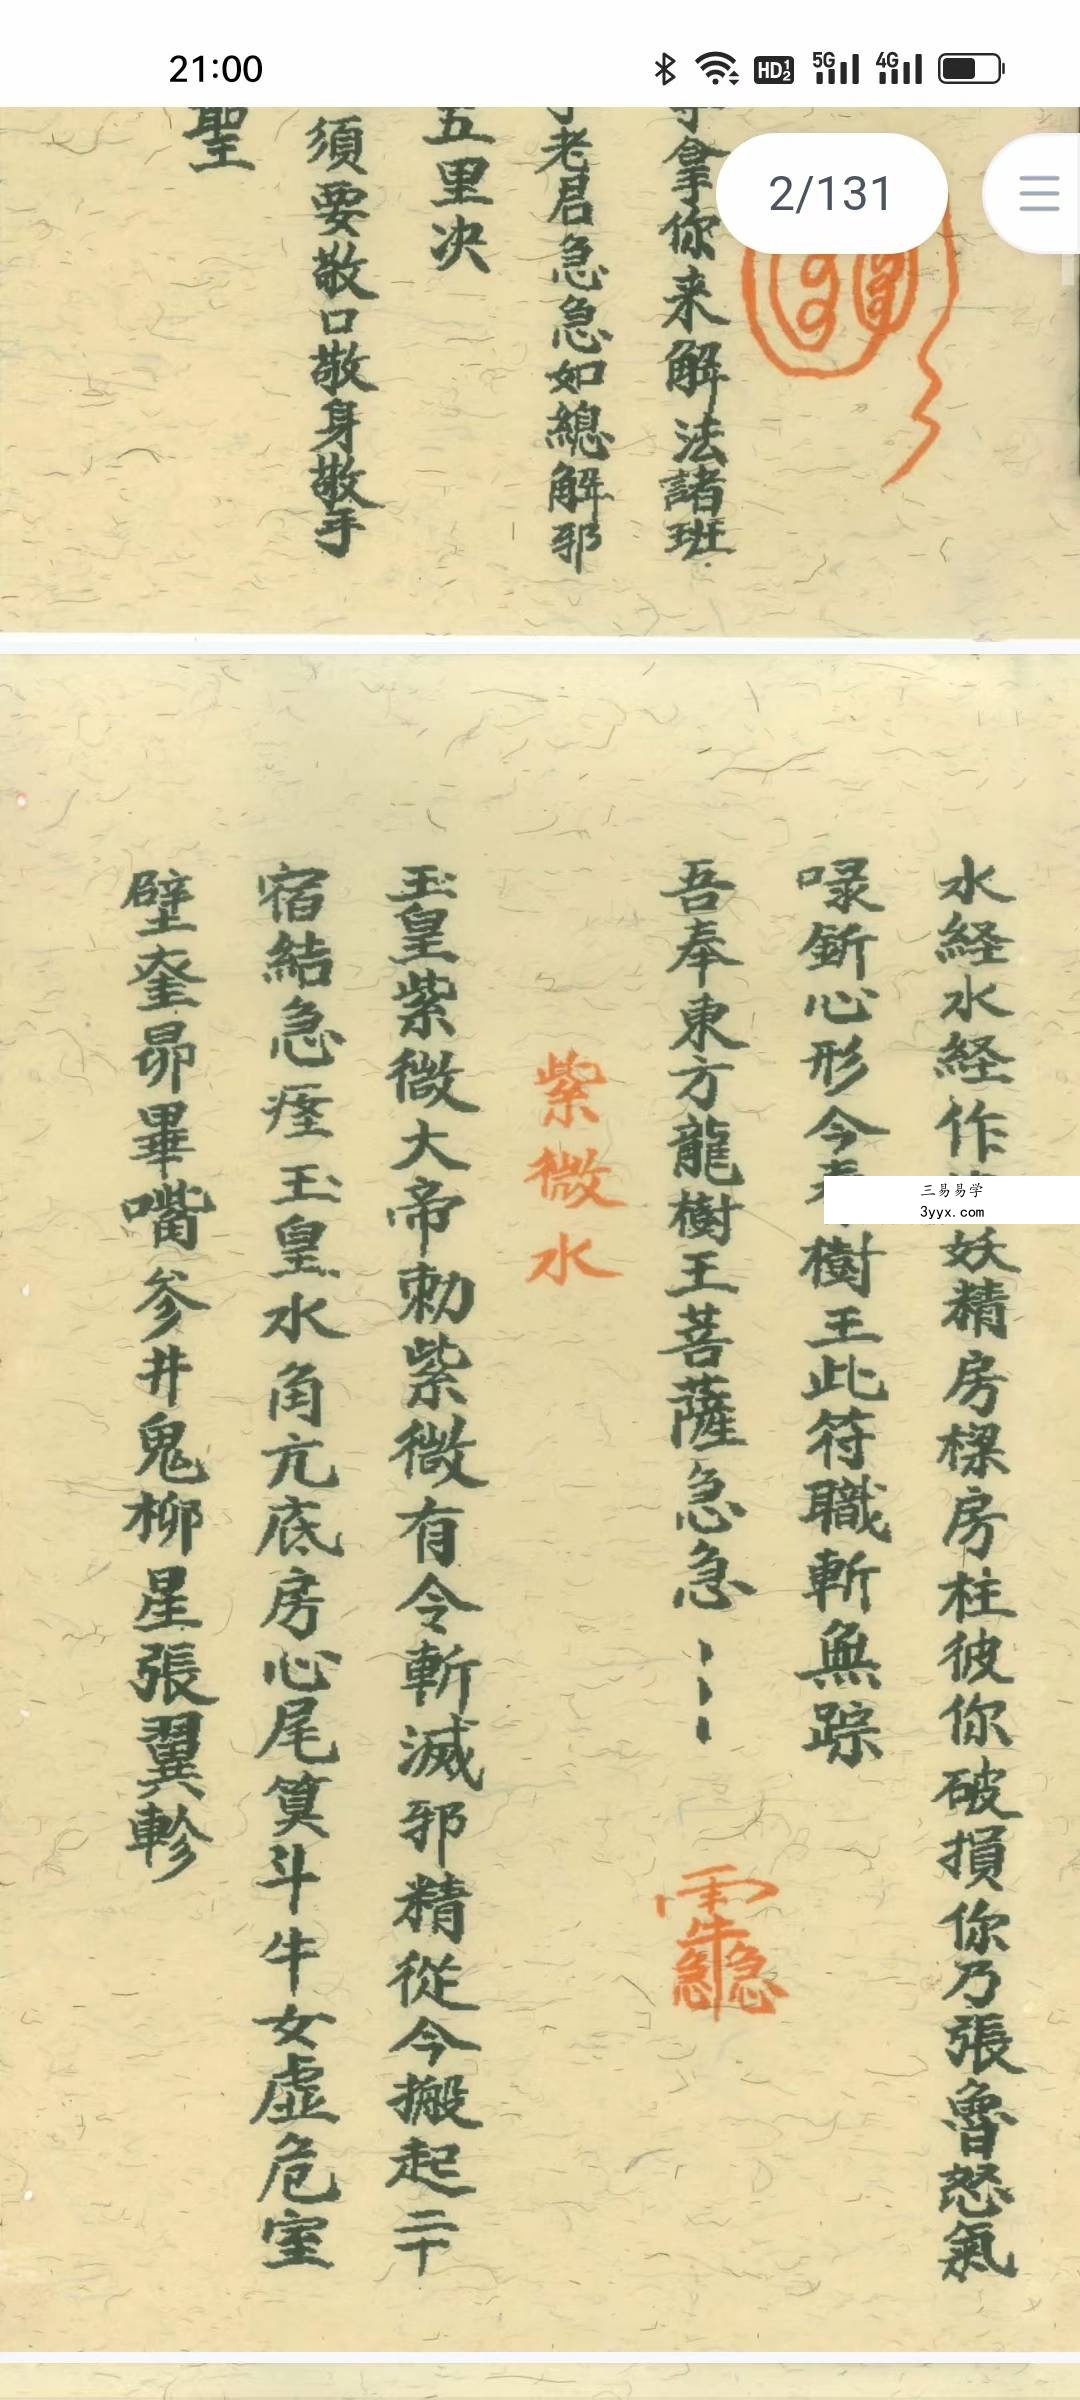 21:00
HD 1 2 5G 4G
2/131
拿你来解法諸班
老君急急如總解邪
五里决
須要敬口敬身敬手
聖
水経水経作
妖精房樑房柱彼你破損你乃張魯怒氣
心形今
樹王此符職斬無踪
吾奉東方龍樹王菩薩急急
紫微水
玉皇紫微大帝勅紫微有令斬滅邪精從今搬起二十
宿結急痊玉皇水角亢底房心尾箕斗牛女虚危室
壁奎昴畢嘴参井鬼柳星張翼軫
三易易学
3yyx.com